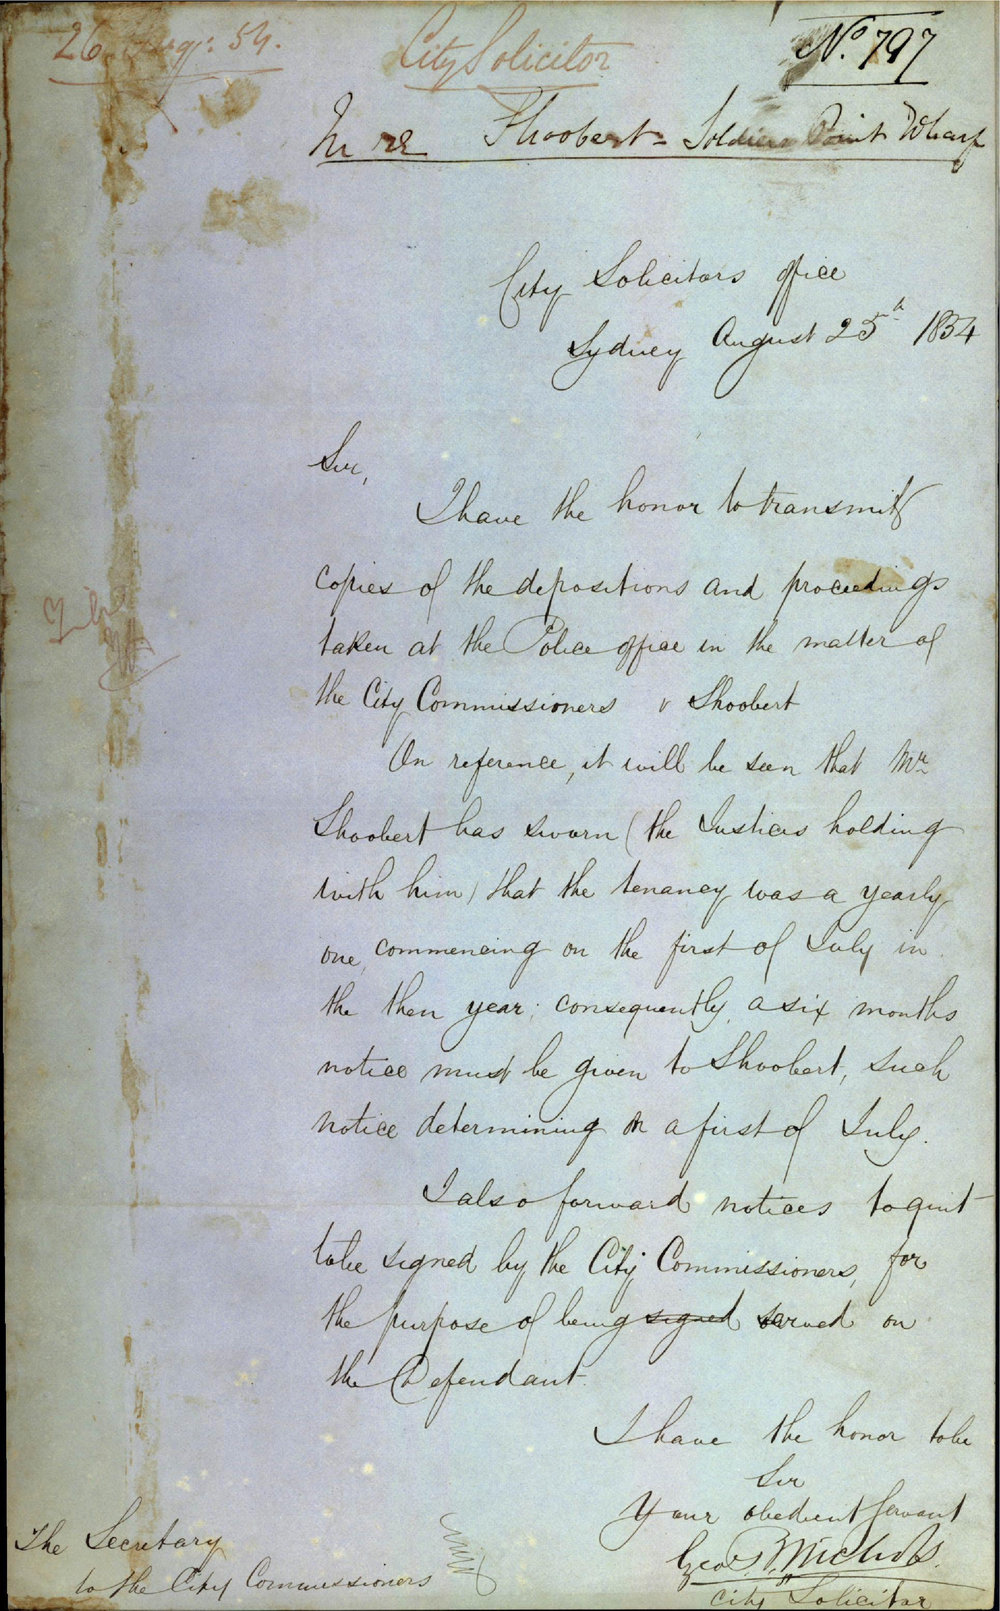 26 Aug: 54.
City Solicitor
No. 797
In re Shoobert = Soldiers Point Wharf
City Solicitors office
Sydney August 25th 1854
Sir,
I have the honor to transmit
copies of the depositions and proceedings
taken at the Police office in the matter of
the City Commissioners v Shoobert
On reference, it will be seen that Mr
Shoobert has sworn (the Justices holding
with him) that the tenancy was a yearly
one, commencing on the first of July in
the then year; consequently, a six months
notice must be given to Shoobert, such
notice determining on a first of July.
I also forward notices to quit
to be signed by the City Commissioners, for
the purpose of being signed served on
the Defendant.
I have the honor to be
Sir
Your obedient Servant
Geo. R. Nichols.
City Solicitor
The Secretary
to the City Commissioners